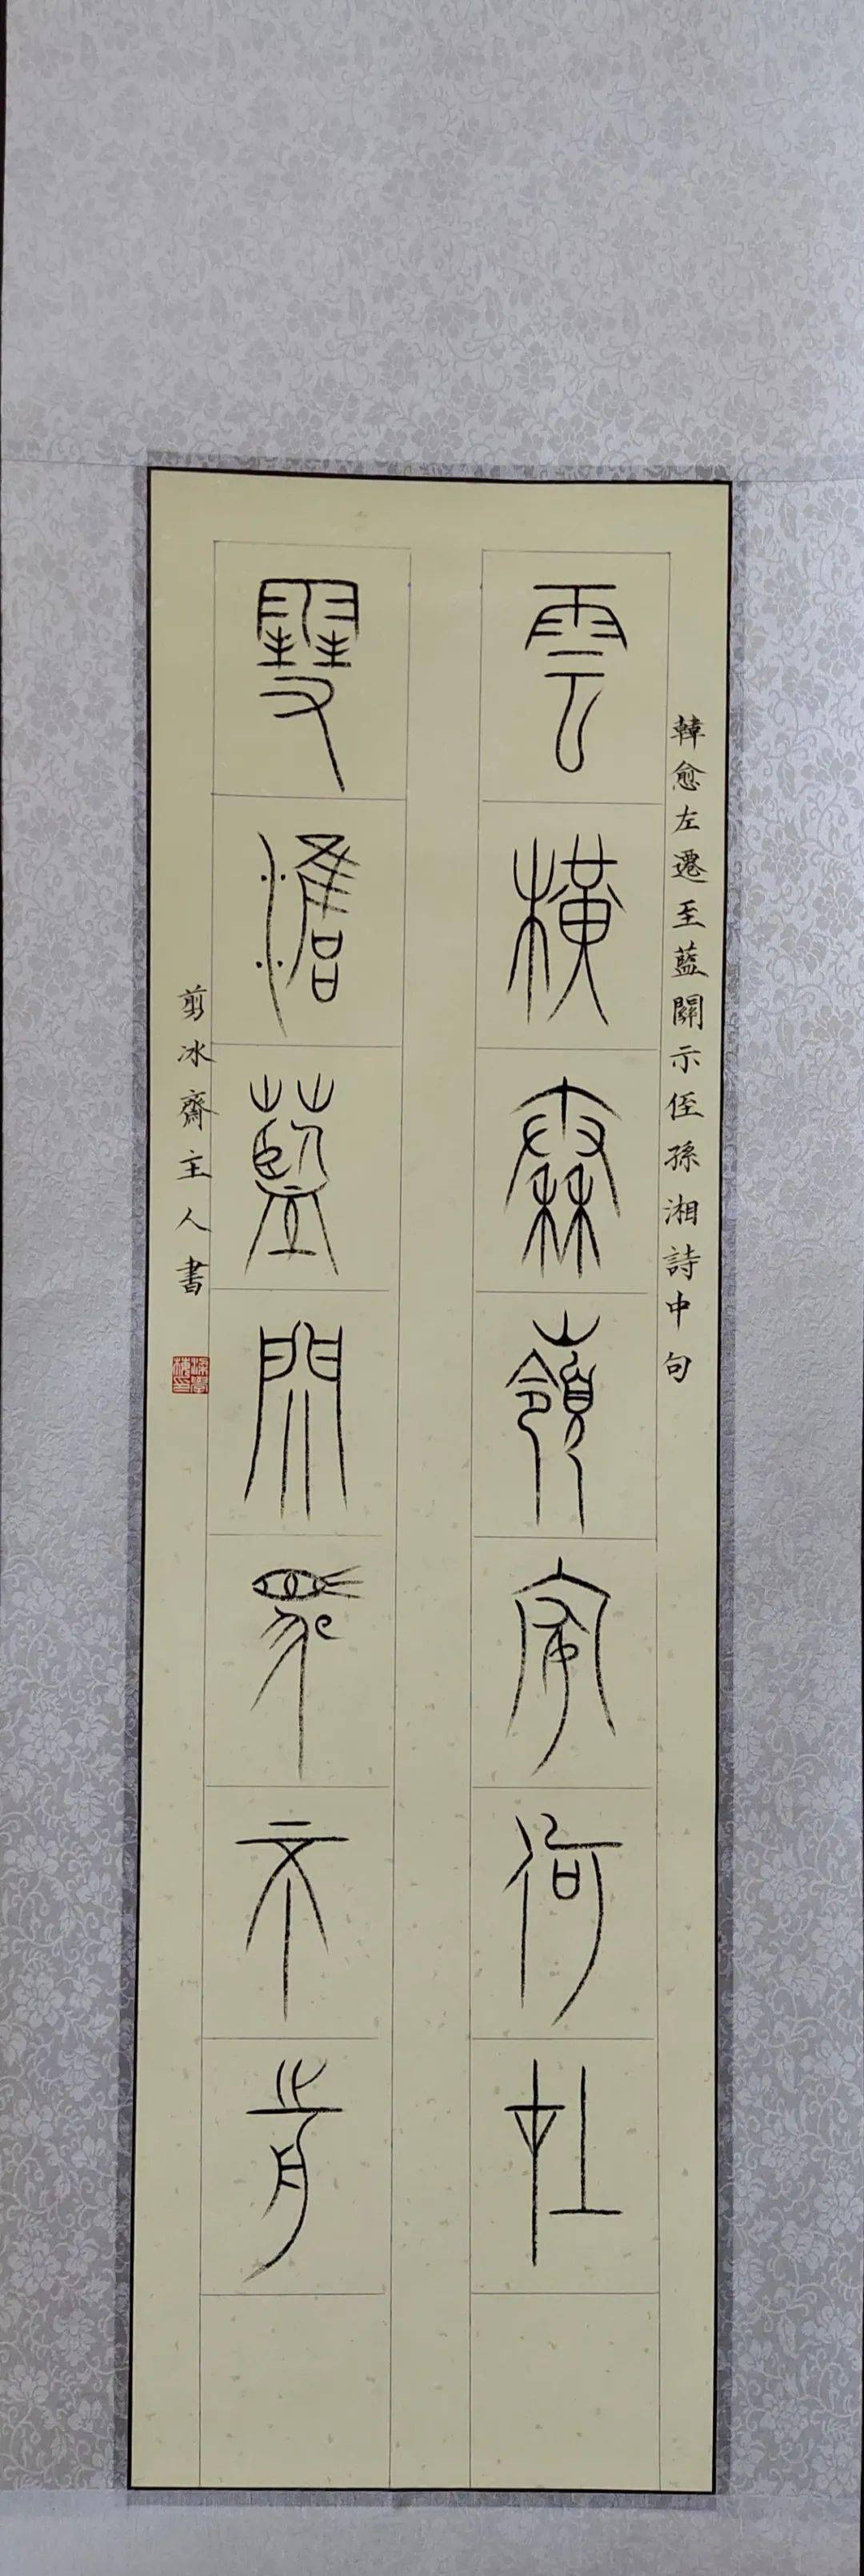 韓愈左遷至藍關示侄孫湘詩中句
雲橫秦嶺家何在
雪擁藍關馬不前
剪冰齋主人書